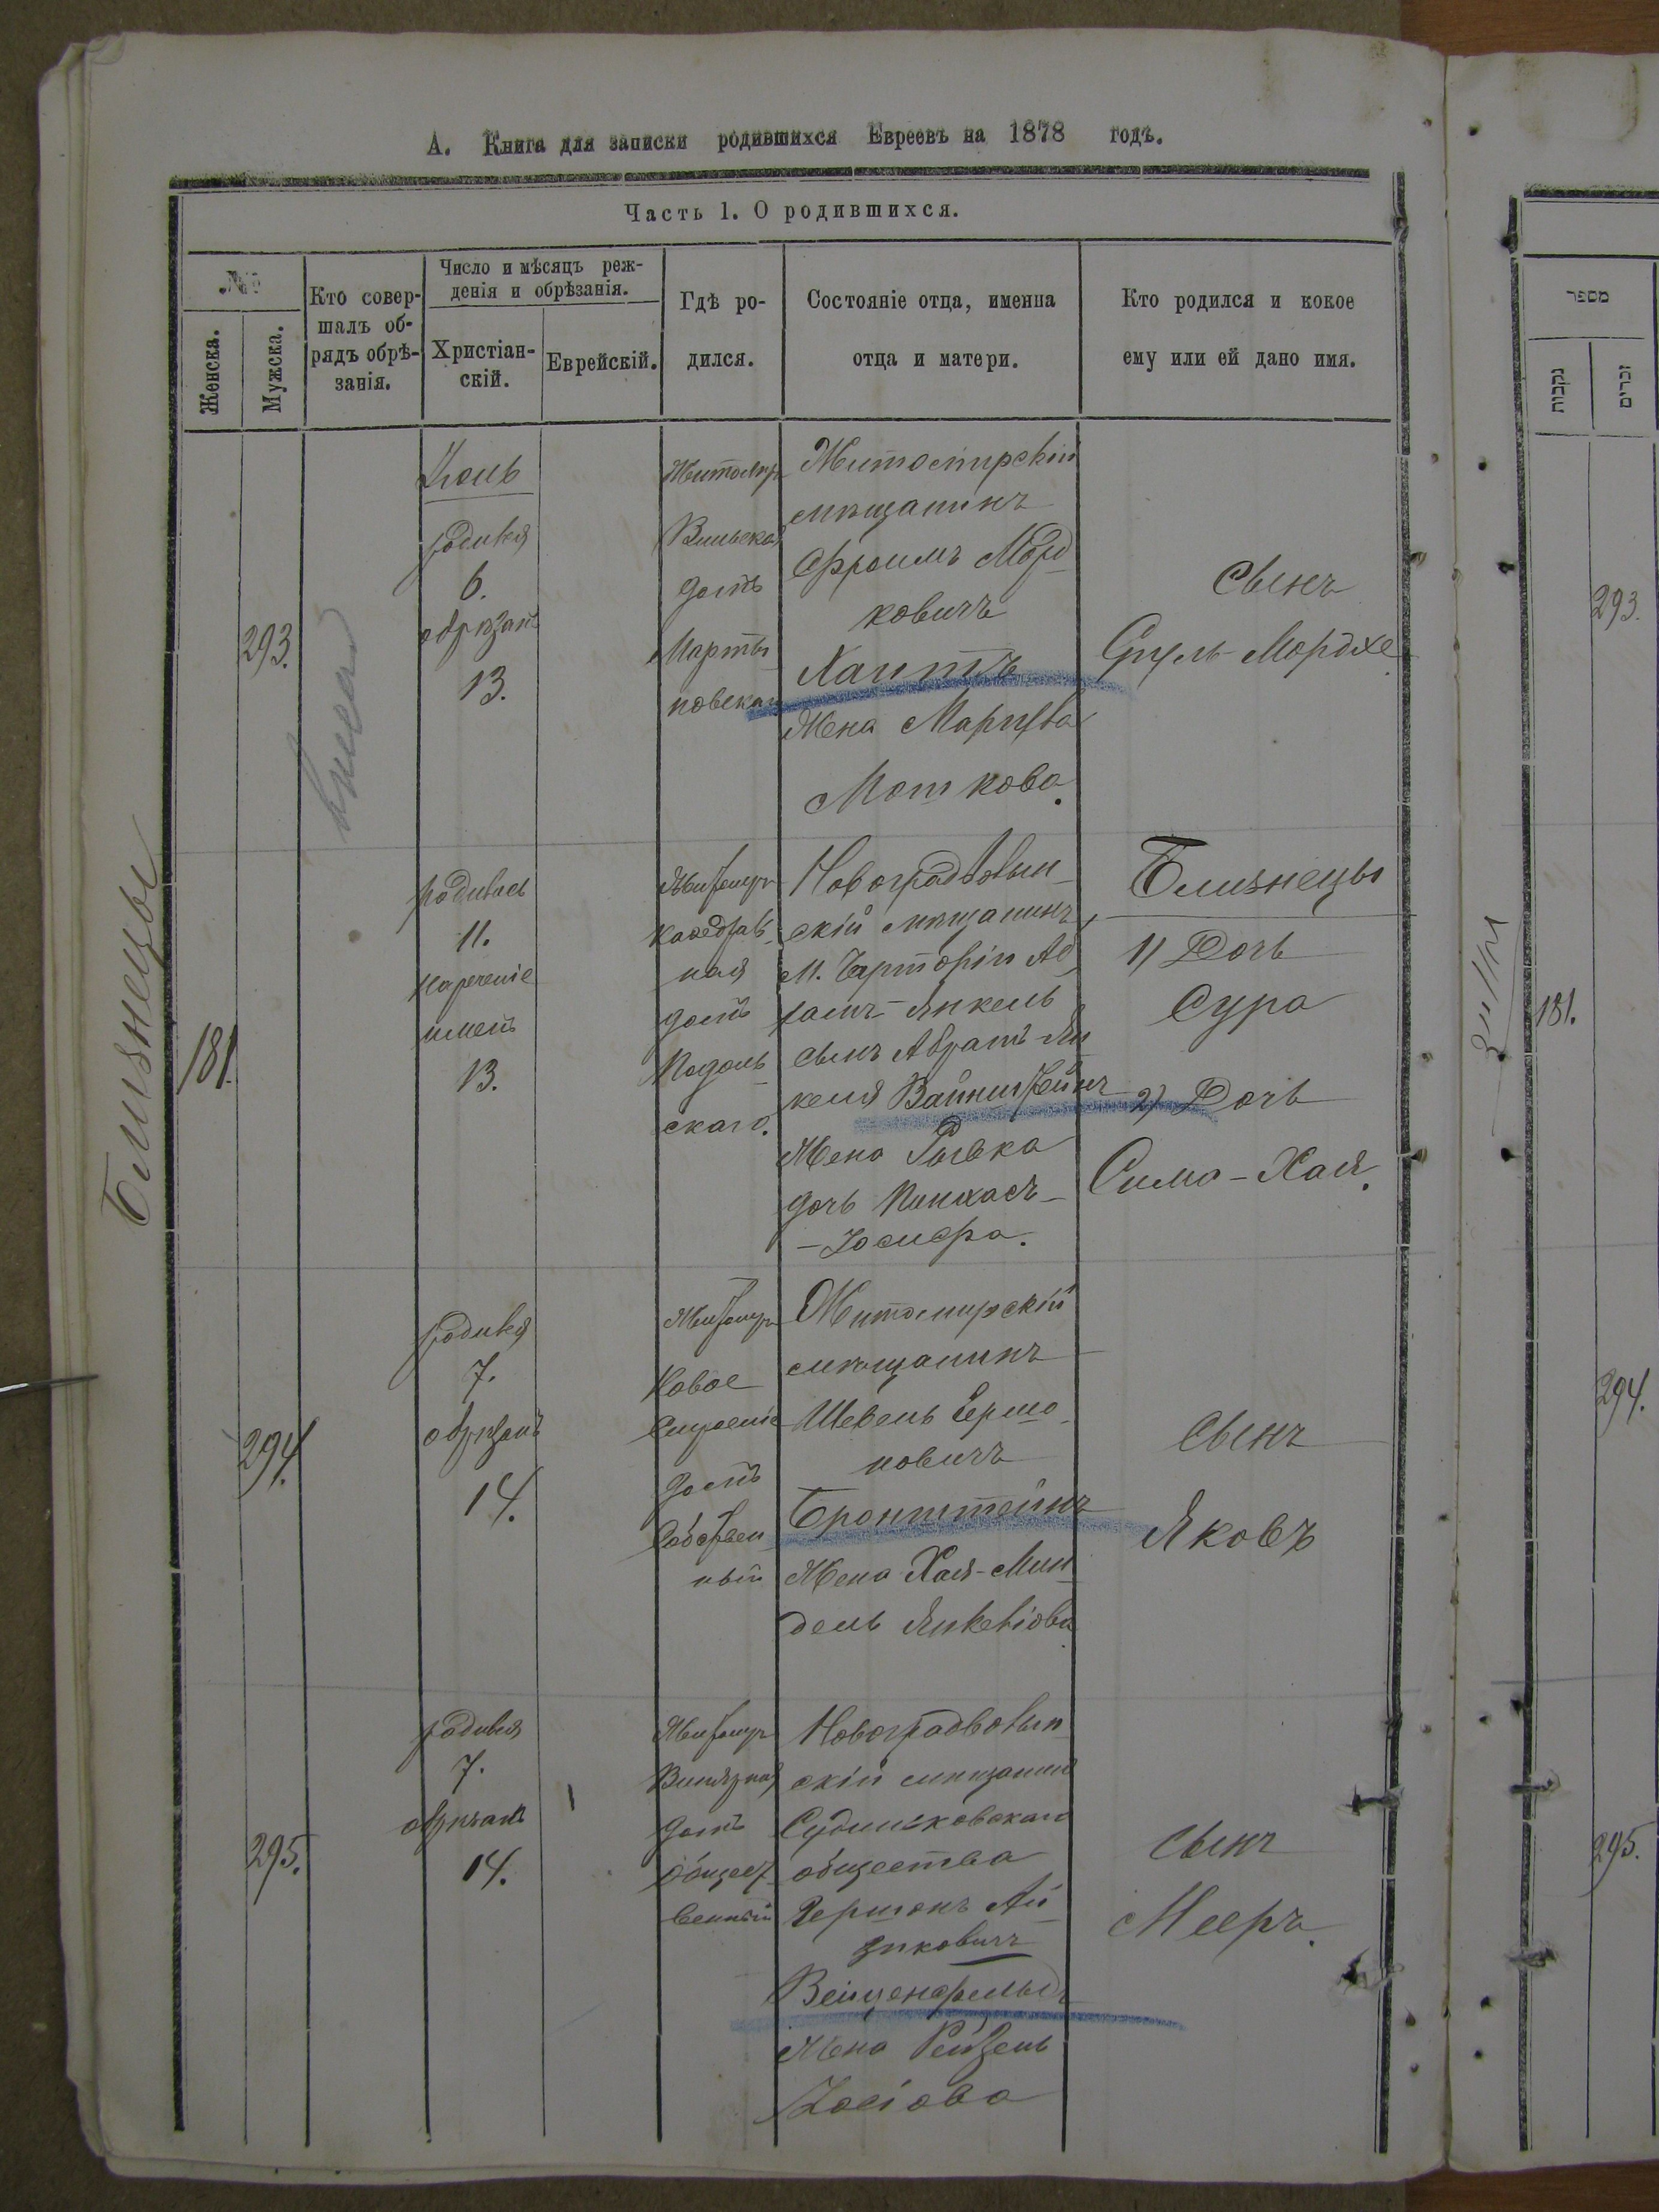 А. Книга для записки родившихся Евреевъ на 1878 годъ.
Часть 1. О родившихся.
№
Женска.
Мужска.
Кто совер-
шалъ об-
рядъ обрѣ-
занія.
Число и мѣсяцъ реж-
денія и обрѣзанія.
Христіан-
скій.
Еврейскій.
Гдѣ ро-
дился.
Состояніе отца, именна
отца и матери.
Кто родился и кокое
ему или ей дано имя.
293.
родился
6.
обрѣзанъ
13.
Житомиръ
домъ
Житомирскій
мѣщанинъ
Фроимъ Морд
ковичъ
Хаитъ
Жена
Моткова.
Сынъ
Сруль-Мордхе
Близнецы
181.
родились
11.
нареченіе
именъ
13.
Житомиръ
каѳедраль
ная
домъ
Подоль
скаго.
Новоградволын
скій мѣщанинъ,
М. Чарторіи Ав
рамъ-Янкель
сынъ Аврамъ-Ян
келя Вайнштейнъ
Жена
дочь Пинхасъ-
Близнецы
1) Дочь
Сура
2) Дочь
Сима-Хая.
294.
родился
7.
обрѣзанъ
14.
Житомиръ
Новое
Строеніе
домъ
Собствен
ный
Житомирскій
мѣщанинъ
Шевель Гершо
новичъ
Бронштейнъ
Жена Хая-Мин
дель
Сынъ
Яковъ
295.
родился
7.
обрѣзанъ
14.
Житомиръ
домъ
Общест
венный
Новоградволын
скій мѣщанинъ
Судилковскаго
общества
Гершонъ Ай
зиковичъ
Вейценфельдъ
Жена Рейзель
Іосіова
Сынъ
Мееръ.
מספר
נקבות
זכרים
293.
181.
294.
295.